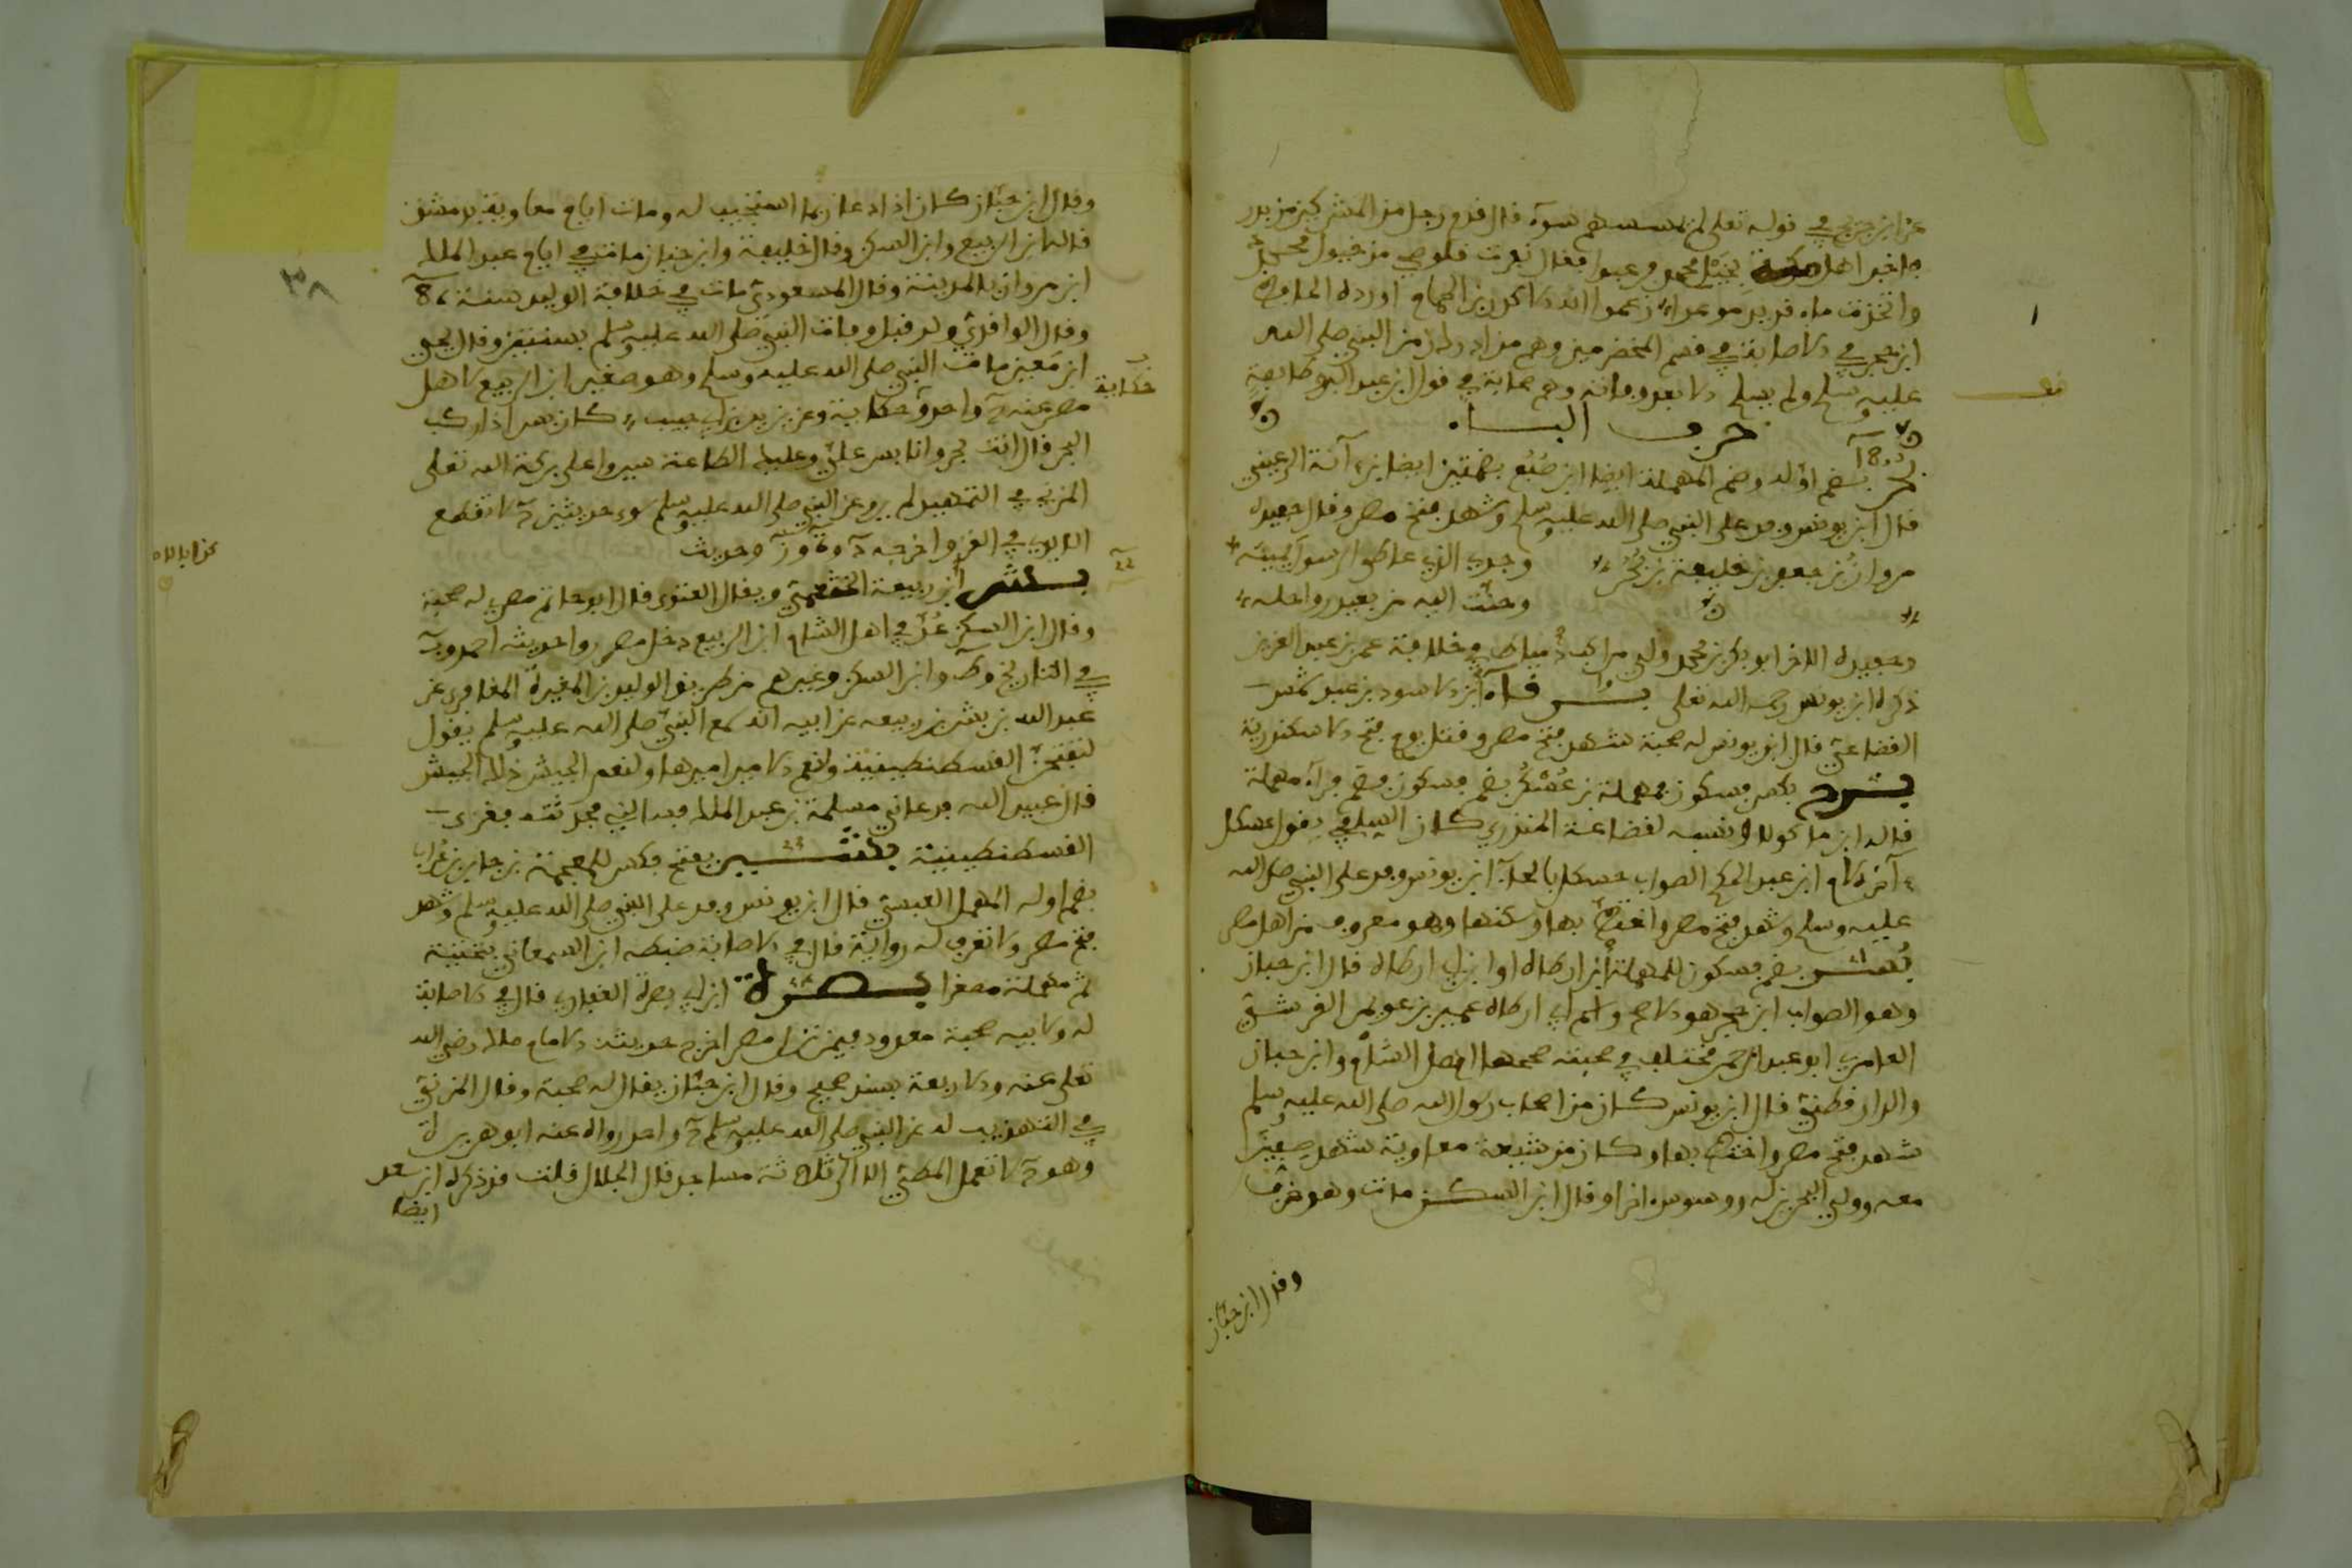 عن ابن جريج في قوله تعلى لم يمسسهم سوء قال قدم رجل من المشركين من بدر
فاخبر اهل مكة بخيل محمد فرعبوا فقال نفرت قلوصي من خيول محمد
واتخذت ماء قديد موعدا زعموا انه الحمام اورده الحافظ
ابن حجر في الاصابة في قسم المخضرمين وهم من ادرك زمن النبي صلى الله
عليه وسلم ولم يسلم الا بعد وفاته وهم صحابة في قول ابن عبد البر وطايفة
حرف الباء
بضم اوله وضم المهملة ايضا ابن ضبع بضمتين ايضا ابن اتة الرعيني
قال ابن يونس وفد على النبي صلى الله عليه وسلم وشهد فتح مصر وقال حفيده
مروان بن جعفر بن خليفة بن بحر وجدي الذي عاطى الرسول يمينه
وحنت اليه من بعيد رواحله
وحفيده الاخر ابو بكر بن محمد ولي مراكب دمياط في خلافة عمر بن عبد العزيز
ذكره ابن يونس رحمه الله تعلى ابن الاسود بن عبد شمس
القضاعي قال ابن يونس له صحبة شهد فتح مصر وقتل يوم فتح الاسكندرية
بكسر فسكون مهملة بن عسكر بضم فسكون فضم فراء مهملة
قاله ابن ماكولا ونسبه لقضاعة المنذري كان السلفي يقول عسكل
ابن عبد الحكم الصواب حسكل بالحاء ابن يونس وفد على النبي صلى الله
عليه وسلم وشهد فتح مصر واختط بها وسكنها وهو معروف من اهل مصر
بسر بضم فسكون للمهملة ابن ارطاة او ابن ابي ارطاة قال ابن حبان
وهو الصواب ابن حجر هو الاصح واسم ابي ارطاة عمير بن عويمر القرشي
العامري ابو عبد الرحمن مختلف في صحبته صححها اهل الشام وابن حبان
والدارقطني قال ابن يونس كان من اصحاب رسول الله صلى الله عليه وسلم
شهد فتح مصر واختط بها وكان من شيعة معاوية شهد صفين
معه وولي البحر له ووسوس اخرا وقال ابن السكن مات وهو خرف
وقال ابن حبان
وقال ابن حبان كان اذا دعا ربما استجيب له ومات ايام معاوية بدمشق
قاله ابن الربيع وابن السكن وقال خليفة وابن حبان مات في ايام عبد الملك
ابن مروان بالمدينة وقال المسعودي مات في خلافة الوليد سنة
وقال الواقدي ولد قبل وفات النبي صلى الله عليه وسلم بسنتين وقال يحيى
ابن معين مات النبي صلى الله عليه وسلم وهو صغير ابن الربيع لاهل
حكاية
مصر عنه واحد وحكاية وعن يزيد بن ابي حبيب كان بسر اذا ركب
البحر قال انت بحر وانا بسر علي وعليك الطاعة سيروا على بركة الله تعلى
المزي في التهذيب لم يرو عن النبي صلى الله عليه وسلم سوى حديثين لا تقطع
الايدي في الغزو اخرجه وحديث
بشر ابن ربيعة الخثعمي ويقال الغنوي قال ابو حاتم مصري له صحبة
وقال ابن السكن عد في اهل الشام ابن الربيع دخل مصر روا حديثه احمد
في التاريخ وابن السكن وغيرهم من طريق الوليد بن المغيرة المعافري عن
عبد الله بن بشر بن ربيعه عن ابيه انه سمع النبي صلى الله عليه وسلم يقول
لتفتحن القسطنطينية ولنعم الامير اميرها ولنعم الجيش ذلك الجيش
قال عبيد الله فدعاني مسلمة بن عبد الملك فسالني فحدثته فغزى
القسطنطينية بشير بفتح فكسر للمعجمة بن جابر بن غراب
بضم اوله المهمل العبسي قال ابن يونس وفد على النبي صلى الله عليه وسلم وشهد
فتح مصر ولا تعرف له رواية قال في الاصابة ضبطه ابن السمعاني بتحتية
ثم مهملة مصغرا بصرة ابن ابي بصرة الغفاري قال في الاصابة
له ولابيه صحبة معدود فيمن نزل مصر اخرج حديثه الامام مالك رضي الله
تعلى عنه والاربعة بسند صحيح وقال ابن حبان يقال له صحبة وقال المزني
في التهذيب له عن النبي صلى الله عليه وسلم واحد رواه عنه ابو هريرة
وهو لا تعمل المطي الا الى ثلاثة مساجد قال الجلال قلت قد ذكره ابن سعد
ايضا